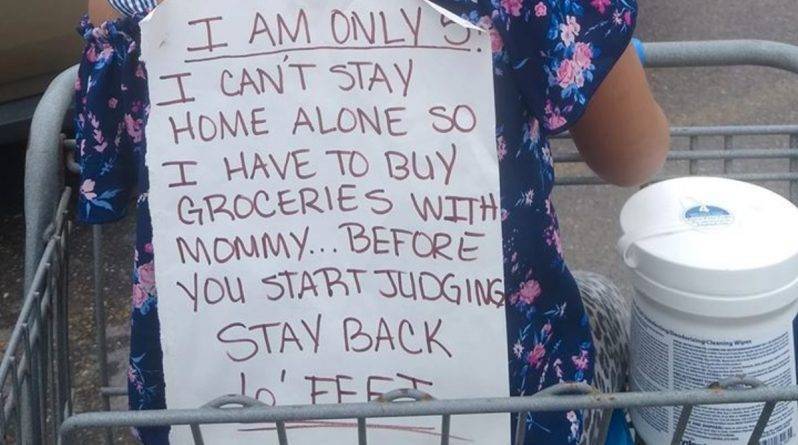 I AM ONLY 5.
I CAN'T STAY
HOME ALONE SO
I HAVE TO BUY
GROCERIES WITH
MOMMY... BEFORE
YOU START JUDGING
STAY BACK
6' FEET
Deodorizing/Cleaning Wipes